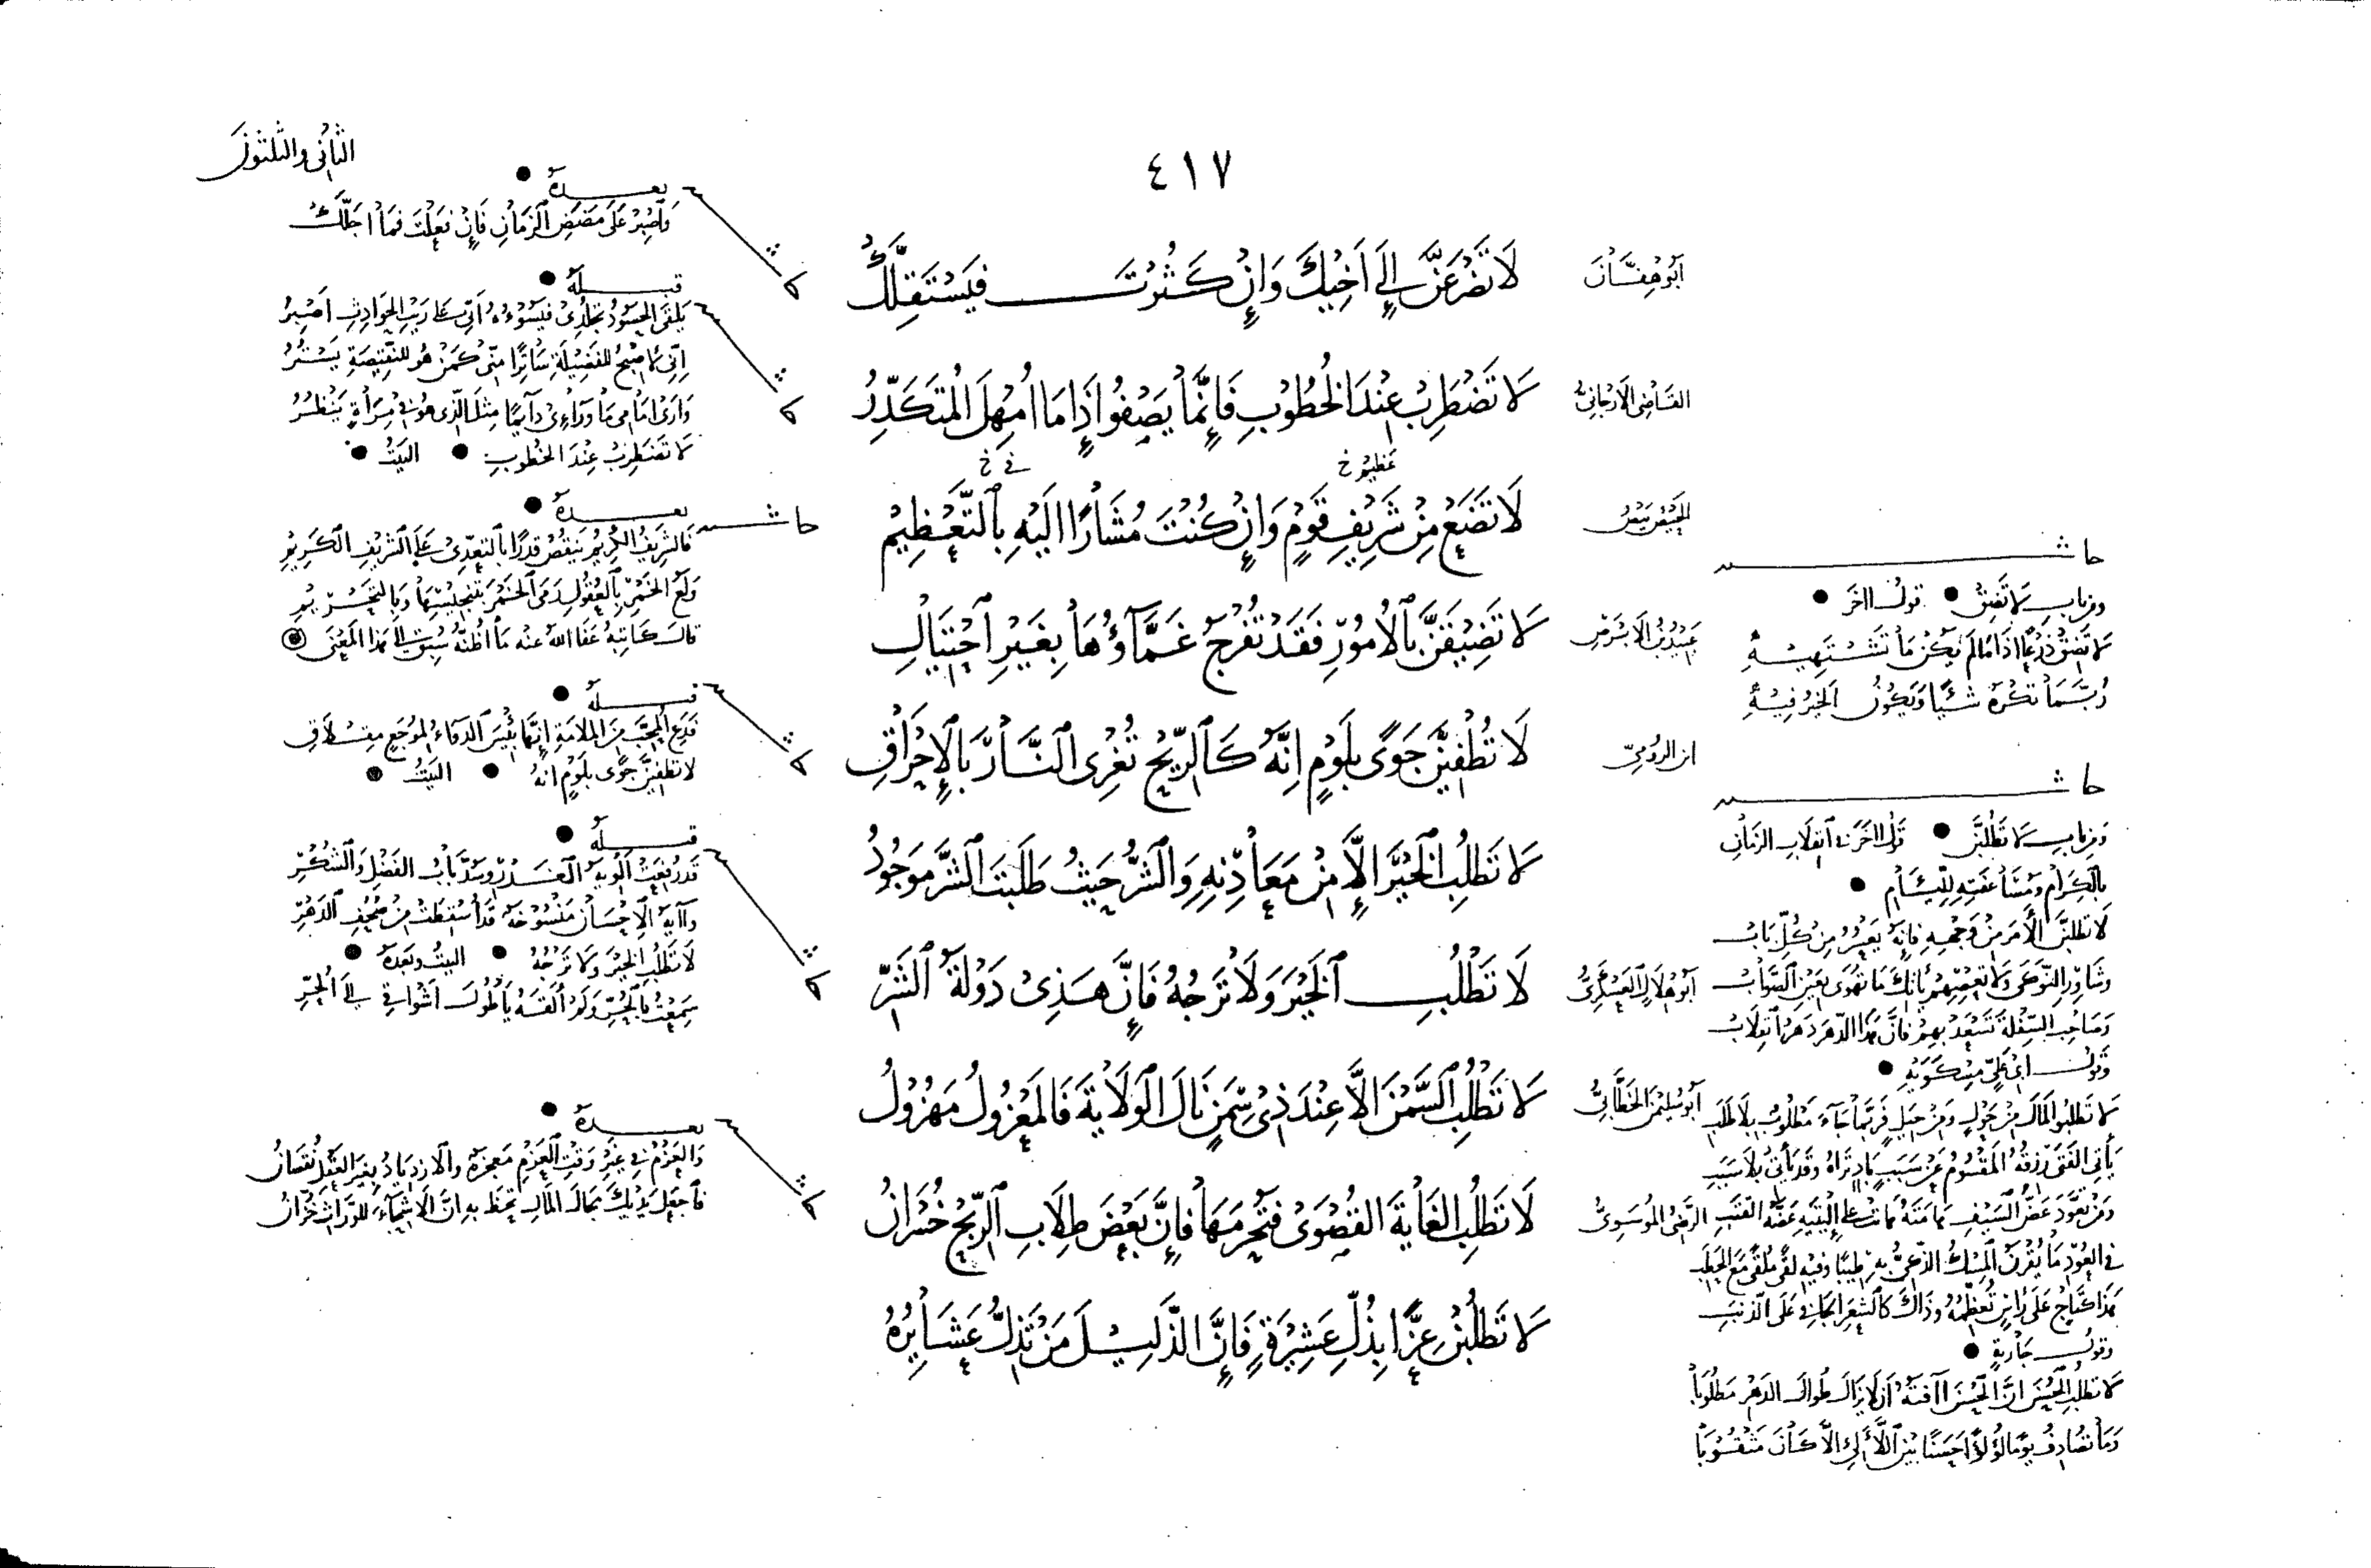 ٤١٧
الثاني والثلثون
أبو هفان
لَا تَضْرَعَنَّ إِلَى أَخِيكَ وَإِنْ كَثُرْتَ فَيَسْتَقِلَّكْ
القاضي الأرجاني
لَا تَضْطَرِبْ عِنْدَ الْخُطُوبِ فَإِنَّمَا يَصْفُوا إِذَا مَا أُمْهِلَ الْمُتَكَدِّرُ
عظيم خ
في خ
الحيص بيص
لَا تَضَعْ مِنْ شَرِيفِ قَوْمٍ وَإِنْ كُنْتَ مُشَارًا إِلَيْهِ بِالتَّعْظِيمِ
عبيد بن الأبرص
لَا تَضِيقَنَّ بِالْأُمُورِ فَقَدْ تُفْرَجُ غَمَّاؤُهَا بِغَيْرِ احْتِيَالِ
ابن الرومي
لَا تُطْفِئَنَّ جَوًى بِلَوْمٍ إِنَّهُ كَالرِّيحِ تُغْرِي النَّارَ بِالْإِحْرَاقِ
لَا تَطْلُبِ الْخَيْرَ إِلَّا مِنْ مَعَادِنِهِ وَالشَّرُّ حَيْثُ طَلَبْتَ الشَّرَّ مَوْجُودُ
أبو هلال العسكري
لَا تَطْلُبِ الْخَيْرَ وَلَا تَرْجُهُ فَإِنَّ هَذِي دَوْلَةُ الشَّرِّ
أبو سليمن الخطابي
لَا تَطْلُبِ السَّمْنَ إِلَّا عِنْدَ ذِي سِمَنٍ نَالَ الْوَلَايَةَ فَالْمَعْزُولُ مَهْزُولُ
الرضي الموسوي
لَا تَطْلُبِ الْغَايَةَ الْقُصْوَى فَتُحْرَمَهَا فَإِنَّ بَعْضَ طِلَابِ الرِّبْحِ خُسْرَانُ
لَا تَطْلُبَنْ عِزًّا بِذُلِّ عَشِيرَةٍ فَإِنَّ الذَّلِيلَ مَنْ تَذِلُّ عَشَائِرُهْ
بعده
وَاصْبِرْ عَلَى مَضَضِ الزَّمَانِ فَإِنْ فَعَلْتَ فَمَا أَجَلَّكْ
قبله
يَلْقَى الْحَسُودُ تَجَلُّدِي فَيَسُوءُهُ أَنِّي عَلَى رَيْبِ الْحَوَادِثِ أَصْبِرُ
إِنِّي لَأُصْبِحُ لِلْفَضِيلَةِ سَاتِرًا مِنِّي كَمَنْ هُوَ لِلنَّقِيصَةِ يَسْتُرُ
وَأَرَى أَمَامِي مَا وَرَاءِي دَائِمًا مِثْلَ الَّذِي هُوَ فِي مِرَأةٍ يَنْظُرُ
لَا تَضْطَرِبْ عِنْدَ الْخُطُوبِ البَيْتُ
حاشـ
بعده
فَالشَّرِيفُ الْكَرِيمُ يَنْقُصُ قَدْرًا بِالتَّعَدِّي عَلَى الشَّرِيفِ الْكَرِيمِ
وَلَعُ الْخَمْرِ بِالْعُقُولِ رَمَى الْخَمْرَ بِتَنْجِيسِهَا وَبِالتَّحْرِيمِ
قال كاتبه عفا الله عنه ما أظنه سبق إلى هذا المعنى
قبله
فَدَعِ الْمُحِبَّ مِنَ الْمَلَامَةِ إِنَّهَا بِئْسَ الدَّوَاءُ لِمُوجَعٍ مِقْلَاقِ
لَا تُطْفِئَنَّ جَوًى بِلَوْمٍ إِنَّهُ البَيْتُ
قبله
قَدْ رُفِعَتْ أَلْوِيَةُ الْغَدْرِ وَسُدَّ بَابُ الْفَضْلِ وَالشُّكْرِ
وَآيَةُ الْإِحْسَانِ مَنْسُوخَةٌ قَدْ أُسْقِطَتْ مِنْ صُحُفِ الدَّهْرِ
لَا تَطْلُبِ الْخَيْرَ وَلَا تَرْجُهُ البيت وبعده
سَمِعْتُ بِالْحُرِّ وَلَمْ أَلْقَهُ يَا طُولَ أَشْوَاقِي إِلَى الْحُرِّ
بعده
وَالْعَزْمُ فِي غَيْرِ وَقْتِ الْعَزْمِ مَعْجَزَةٌ وَالِازْدِيَادُ بِغَيْرِ الْعَقْلِ نُقْصَانُ
فَاجْعَلْ يَدَيْكَ مَجَالَ الْمَالِ تَحْظَ بِهِ إِنَّ الْأَشِحَّاءَ لِلْوُرَّاثِ خُزَّانُ
حاشـ
ومن باب لا تضق قول آخر
لَا تَضِقْ ذَرْعًا إِذَا مَا لَمْ يَكُنْ مَا تَشْتَهِيهِ
رُبَّمَا تَكْرَهُ شَيْئًا وَيَكُونُ الْخَيْرُ فِيهِ
حاشـ
ومن باب لا تطلبن قول آخر في انقلاب الزمان
بالكرام ومساعفته للئام
لَا تَطْلُبَنَّ الْأَمْرَ مِنْ وَجْهِهِ فَإِنَّهُ يَعْسُرُ مِنْ كُلِّ بَابْ
وَشَاوِرِ النَّوْكَى وَلَا تَعْصِهِمْ يَأْتِكَ مَا تَهْوَى بِعَيْنِ الصَّوَابْ
وَصَاحِبِ السِّفْلَةَ تَسْعَدْ بِهِمْ فَإِنَّ هَذَا الدَّهْرَ دَهْرُ انْقِلَابْ
وقول أبي علي مسكويه
لَا تَطْلُبُوا الْمَالَ مِنْ حَوْلٍ وَمِنْ حِيَلٍ فَرُبَّمَا جَاءَ مَطْلُوبٌ بِلَا طَلَبِ
يَأْتِي الْفَتَى رِزْقُهُ الْمَقْسُومُ عَنْ سَبَبٍ بَادٍ تَرَاهُ وَقَدْ يَأْتِي بِلَا سَبَبِ
وقول جارية
لَا تَطْلُبِ الْحُسْنَ إِنَّ الْحُسْنَ آفَتُهُ أَنْ لَا يَزَالَ طُوَالَ الدَّهْرِ مَطْلُوبَا
وَمَا تُصَادِفُ يَوْمًا لُؤْلُؤًا حَسَنًا بَيْنَ اللَّآلِئِ إِلَّا كَانَ مَثْقُوبَا